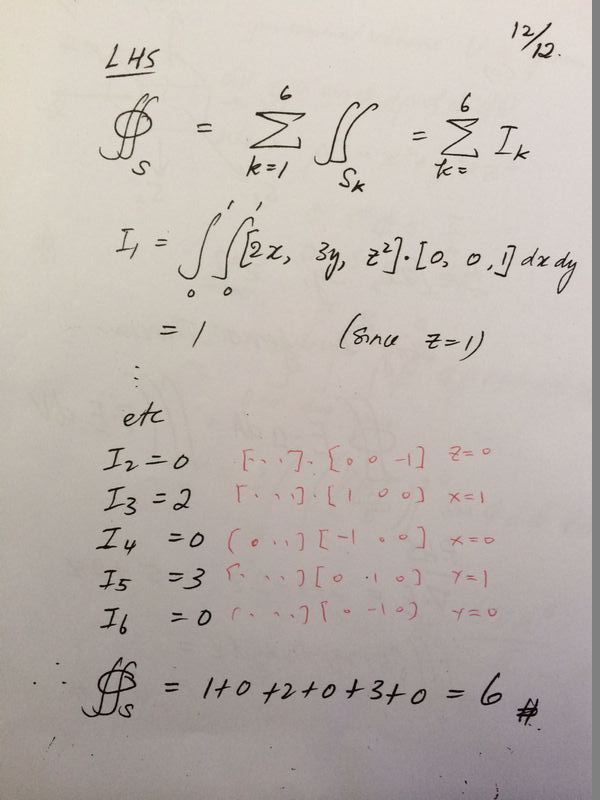 12/12.
LHS
∯_S = Σ_{k=1}^{6} ∬_{S_k} = Σ_{k=}^{6} I_k
I₁ = ∫₀¹ ∫₀¹ [2x, 3y, z²]·[0, 0, 1] dx dy
= 1 (since z=1)
⋮
etc
I₂ = 0 [...]·[0 0 -1] z=0
I₃ = 2 [...]·[1 0 0] x=1
I₄ = 0 (0..)[-1 0 0] x=0
I₅ = 3 [...][0 1 0] Y=1
I₆ = 0 (...)[0 -1 0) Y=0
∴ ∯_S = 1+0+2+0+3+0 = 6 #